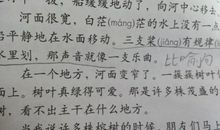 船缓缓地动了，向河中心移去
河面很宽，白茫(máng)茫的水上没有一点
平静地在水面移动。三支桨(jiǎng)有规律
水里划，那声音就像一支乐曲。比喻句
在一个地方，河面变窄了。一簇簇树叶
面上。树叶真绿得可爱。那是许多株茂盛的
树，看不出主干在什么地方。
当我说许多株榕树的时候，朋友们马